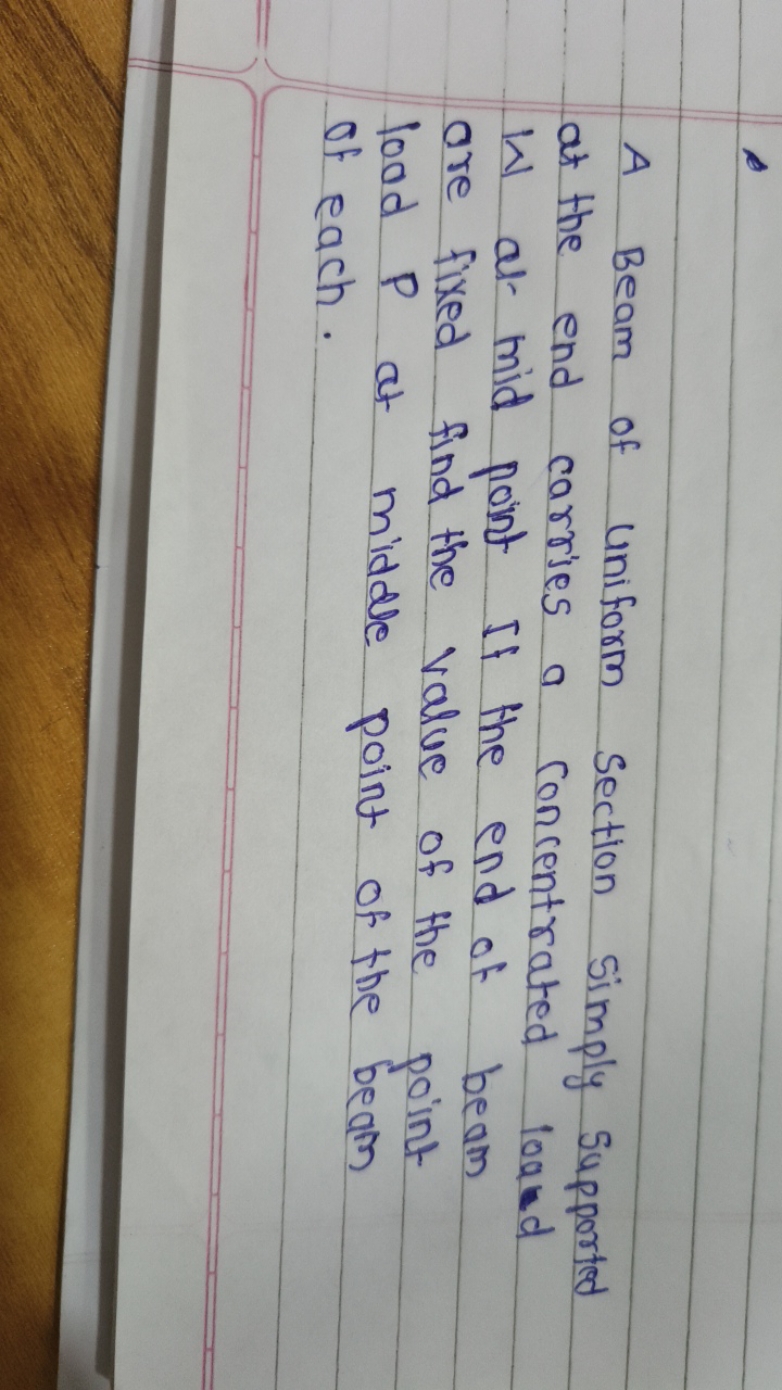 A Beam of uniform section simply supported
at the end carries a concentrated load
W at mid point If the end of beam
are fixed find the value of the point
load P at middle point of the beam
of each.